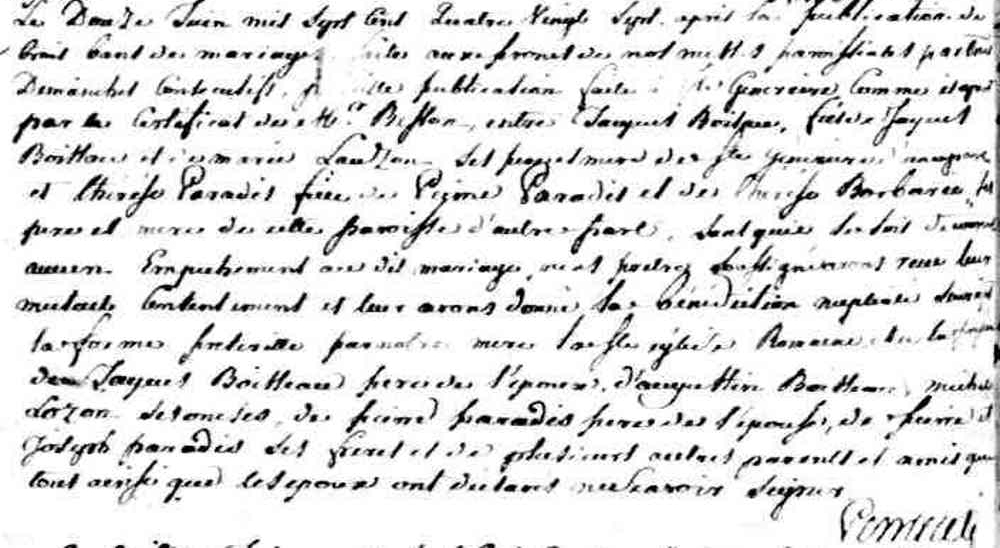 Le Douze Juin mil Sept Cent Quatre Vingt Sept après la publication de
trois bans de mariage faite au prosne de nos messes paroissiales par trois
Dimanches Consecutifs, publication faite à Ste Genevieve Comme il
par le Certificat de Mr Besson, entre Jacques Boiteau, fils de Jacques
Boitteau et de marie Lauzon Ses pere et mere de Ste Genevieve d'une part
et Thérése Paradis fille de Pierre Paradis et de Thérése Barbarie ses
pere et mere de cette paroisse d'autre part, sans qu'il se soit decouvert
aucun Empechement au dit mariage, nous pretre Soussigné avons reçu leur
mutuel Consentement et leur avons donné la bénédiction nuptiale Suivant
la forme prescritte par notre mere la Ste église Romaine, en la
de Jacques Boitteau pere de l'époux, d'augustin Boitteau, michel
Lozon Ses oncles, de pierre paradis pere de l'épouse, de pierre et
Joseph paradis Ses freres et de plusieurs autres parents et amis qui
tout ainsi que les epoux ont declarés ne Scavoir Signer